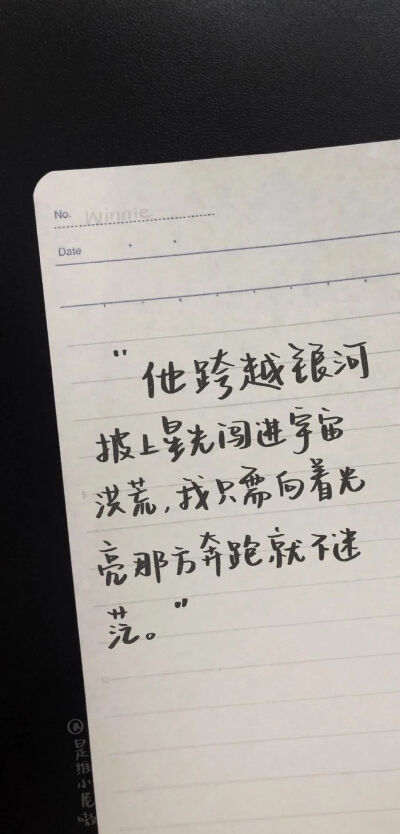 No. Winnie
Date
"他跨越银河
披上星光闯进宇宙
洪荒,我只需向着光
亮那方奔跑就不迷
茫。"
@是维小尾嗷